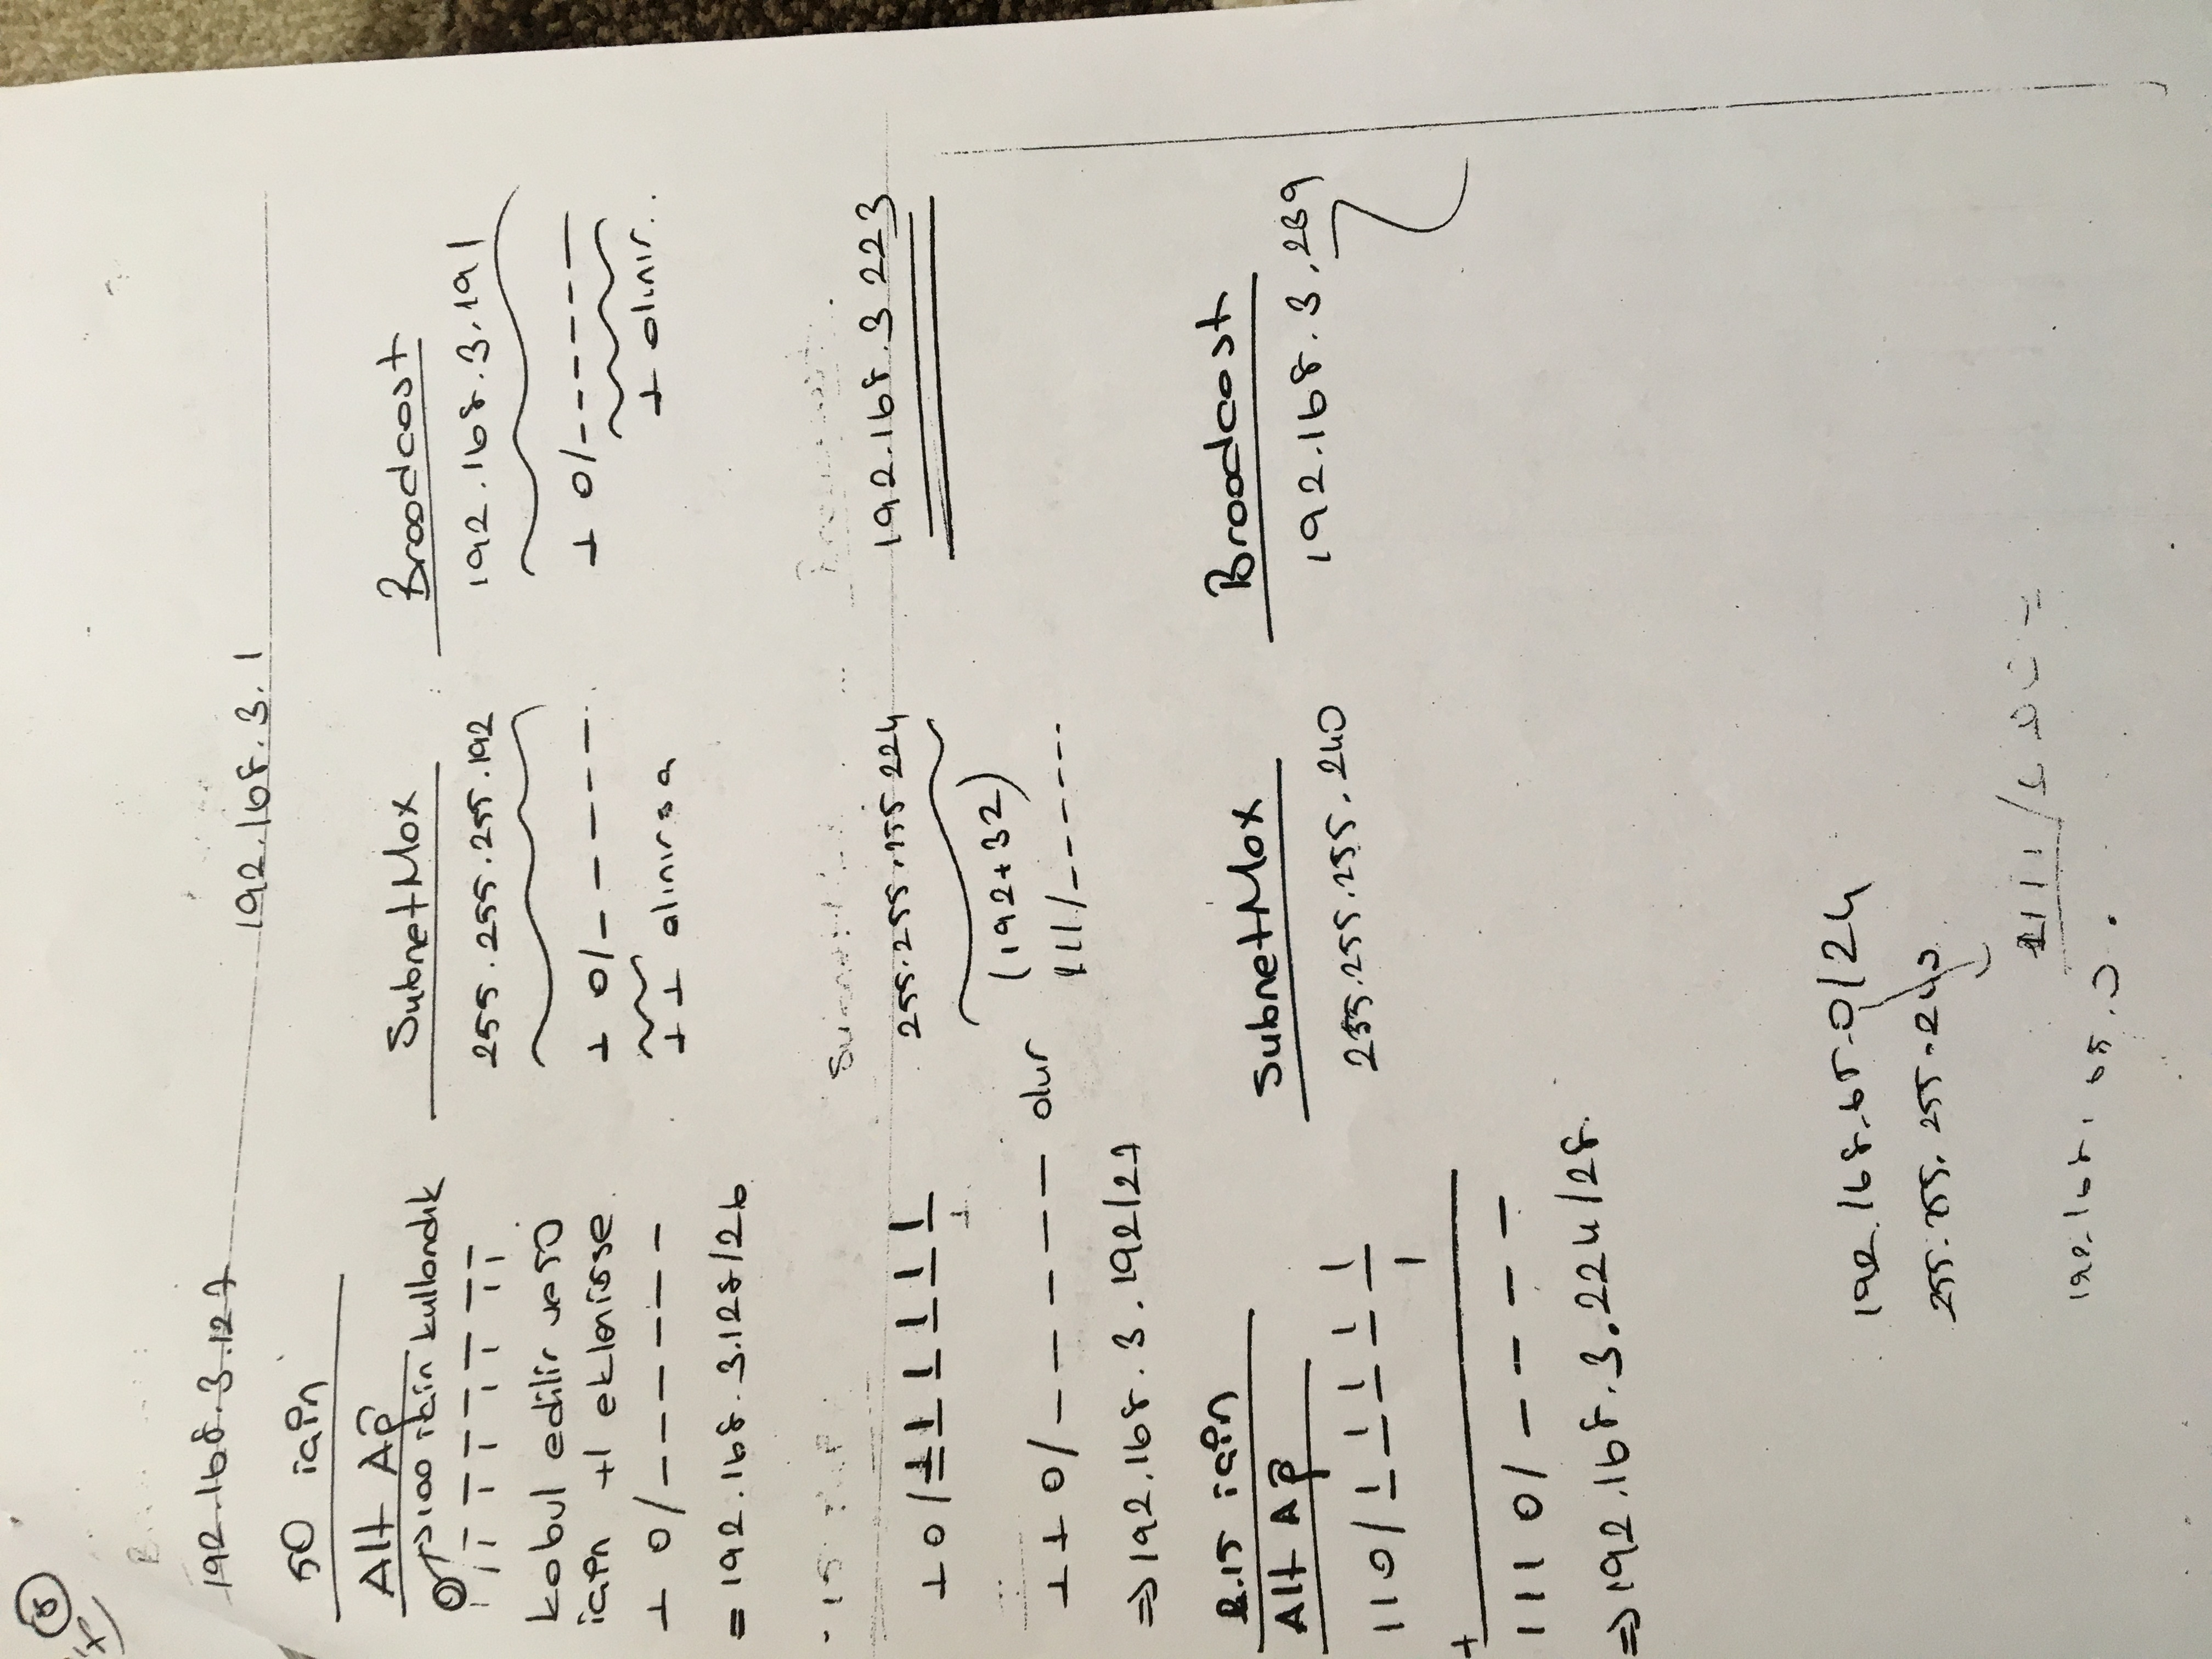 8
192.168.3.127
192.168.3.1
50 için
Alt Ağ
→100 için kullandık
0
kabul edilir ve 50
için +1 eklenirse
1 0/------
= 192.168.3.128/26
SubnetMax
255.255.255.192
1 0/------
1 1 alınırsa
Broadcast
192.168.3.191
1 0/------
1 alınır..
15
1 0/1 1 1 1 1 1
1
1 1 0/----- olur
⇒192.168.3.192/27
255.255.255 224
(192+32)
111/------
192.168.3 223
2.15 için
Alt Ağ
110/1 1 1 1 1
1
+
1110/----
⇒192.168.3.224/28.
SubnetMax
255.255.255.240
Broadcast
192.168.3.239
192.168.65.0/24
255.255.255.240
1111/
192.168.65.0.